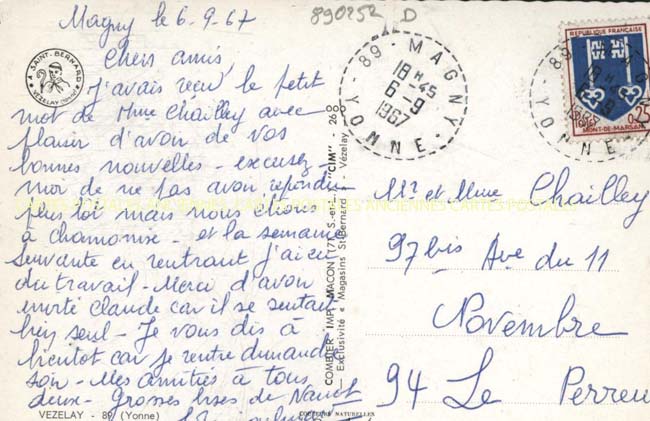 Magny le 6-9-67
890252 D
Chers amis,
J'avais reçu le petit
mot de Mme Chailley avec
plaisir d'avoir de vos
bonnes nouvelles - excusez-
moi de ne pas avoir répondu
plus tôt mais nous étions
à chamonix - et la semaine
suivante en rentrant j'ai eu
du travail - Merci d'avoir
invité Claude car il se sentait
bien seul - Je vous dis à
bientôt car je rentre dimanche
soir - Mes amitiés à tous
deux - Grosses bises de
VEZELAY - 89 (Yonne)
A SAINT-BERNARD
VEZELAY (Yonne)
COMBIER IMP. MACON (71 S.-et-L.) "CIM" - 268
Exclusivité « Magasins St-Bernard » - Vézelay
COULEURS NATURELLES
89 - MAGNY
18 H -45
6 -9
1967
YONNE
REPUBLIQUE FRANÇAISE
0,25
MONT-DE-MARSAN
Mr et Mme Chailley
97bis Ave du 11
Novembre
94 Le Perreu